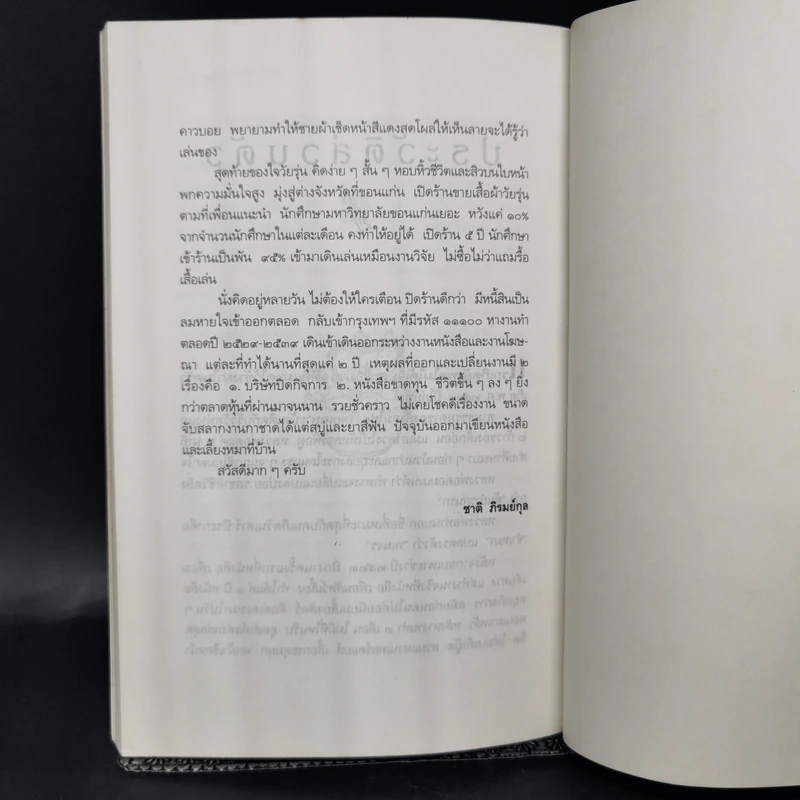 คาวบอย พยายามทำให้ชายผ้าเช็ดหน้าสีแดงสดโผล่ให้เห็นลายจะได้รู้ว่า
เล่นของ
สุดท้ายของใจวัยรุ่น คิดง่าย ๆ สั้น ๆ หอบหิ้วชีวิตและสิวบนใบหน้า
พกความมั่นใจสูง มุ่งสู่ต่างจังหวัดที่ขอนแก่น เปิดร้านขายเสื้อผ้าวัยรุ่น
ตามที่เพื่อนแนะนำ นักศึกษามหาวิทยาลัยขอนแก่นเยอะ หวังแค่ ๑๐%
จากจำนวนนักศึกษาในแต่ละเดือน คงทำให้อยู่ได้ เปิดร้าน ๕ ปี นักศึกษา
เข้าร้านเป็นพัน ๙๕% เข้ามาเดินเล่นเหมือนงานวิจัย ไม่ซื้อไม่ว่าแถมรื้อ
เสื้อเล่น
นั่งคิดอยู่หลายวัน ไม่ต้องให้ใครเตือน ปิดร้านดีกว่า มีหนี้สินเป็น
ลมหายใจเข้าออกตลอด กลับเข้ากรุงเทพฯ ที่มีรหัส ๑๑๑๐๐ หางานทำ
ตลอดปี ๒๕๒๙-๒๕๓๙ เดินเข้าเดินออกระหว่างงานหนังสือและงานโฆษ-
ณา แต่ละที่ทำได้นานที่สุดแค่ ๒ ปี เหตุผลที่ออกและเปลี่ยนงานมี ๒
เรื่องคือ ๑. บริษัทปิดกิจการ ๒. หนังสือขาดทุน ชีวิตขึ้น ๆ ลง ๆ ยิ่ง
กว่าตลาดหุ้นที่ผ่านมาจนนาน รวยชั่วคราว ไม่เคยโชคดีเรื่องงาน ขนาด
จับสลากงานกาชาดได้แต่สบู่และยาสีฟัน ปัจจุบันออกมาเขียนหนังสือ
และเลี้ยงหมาที่บ้าน
สวัสดีมาก ๆ ครับ
ชาติ ภิรมย์กุล